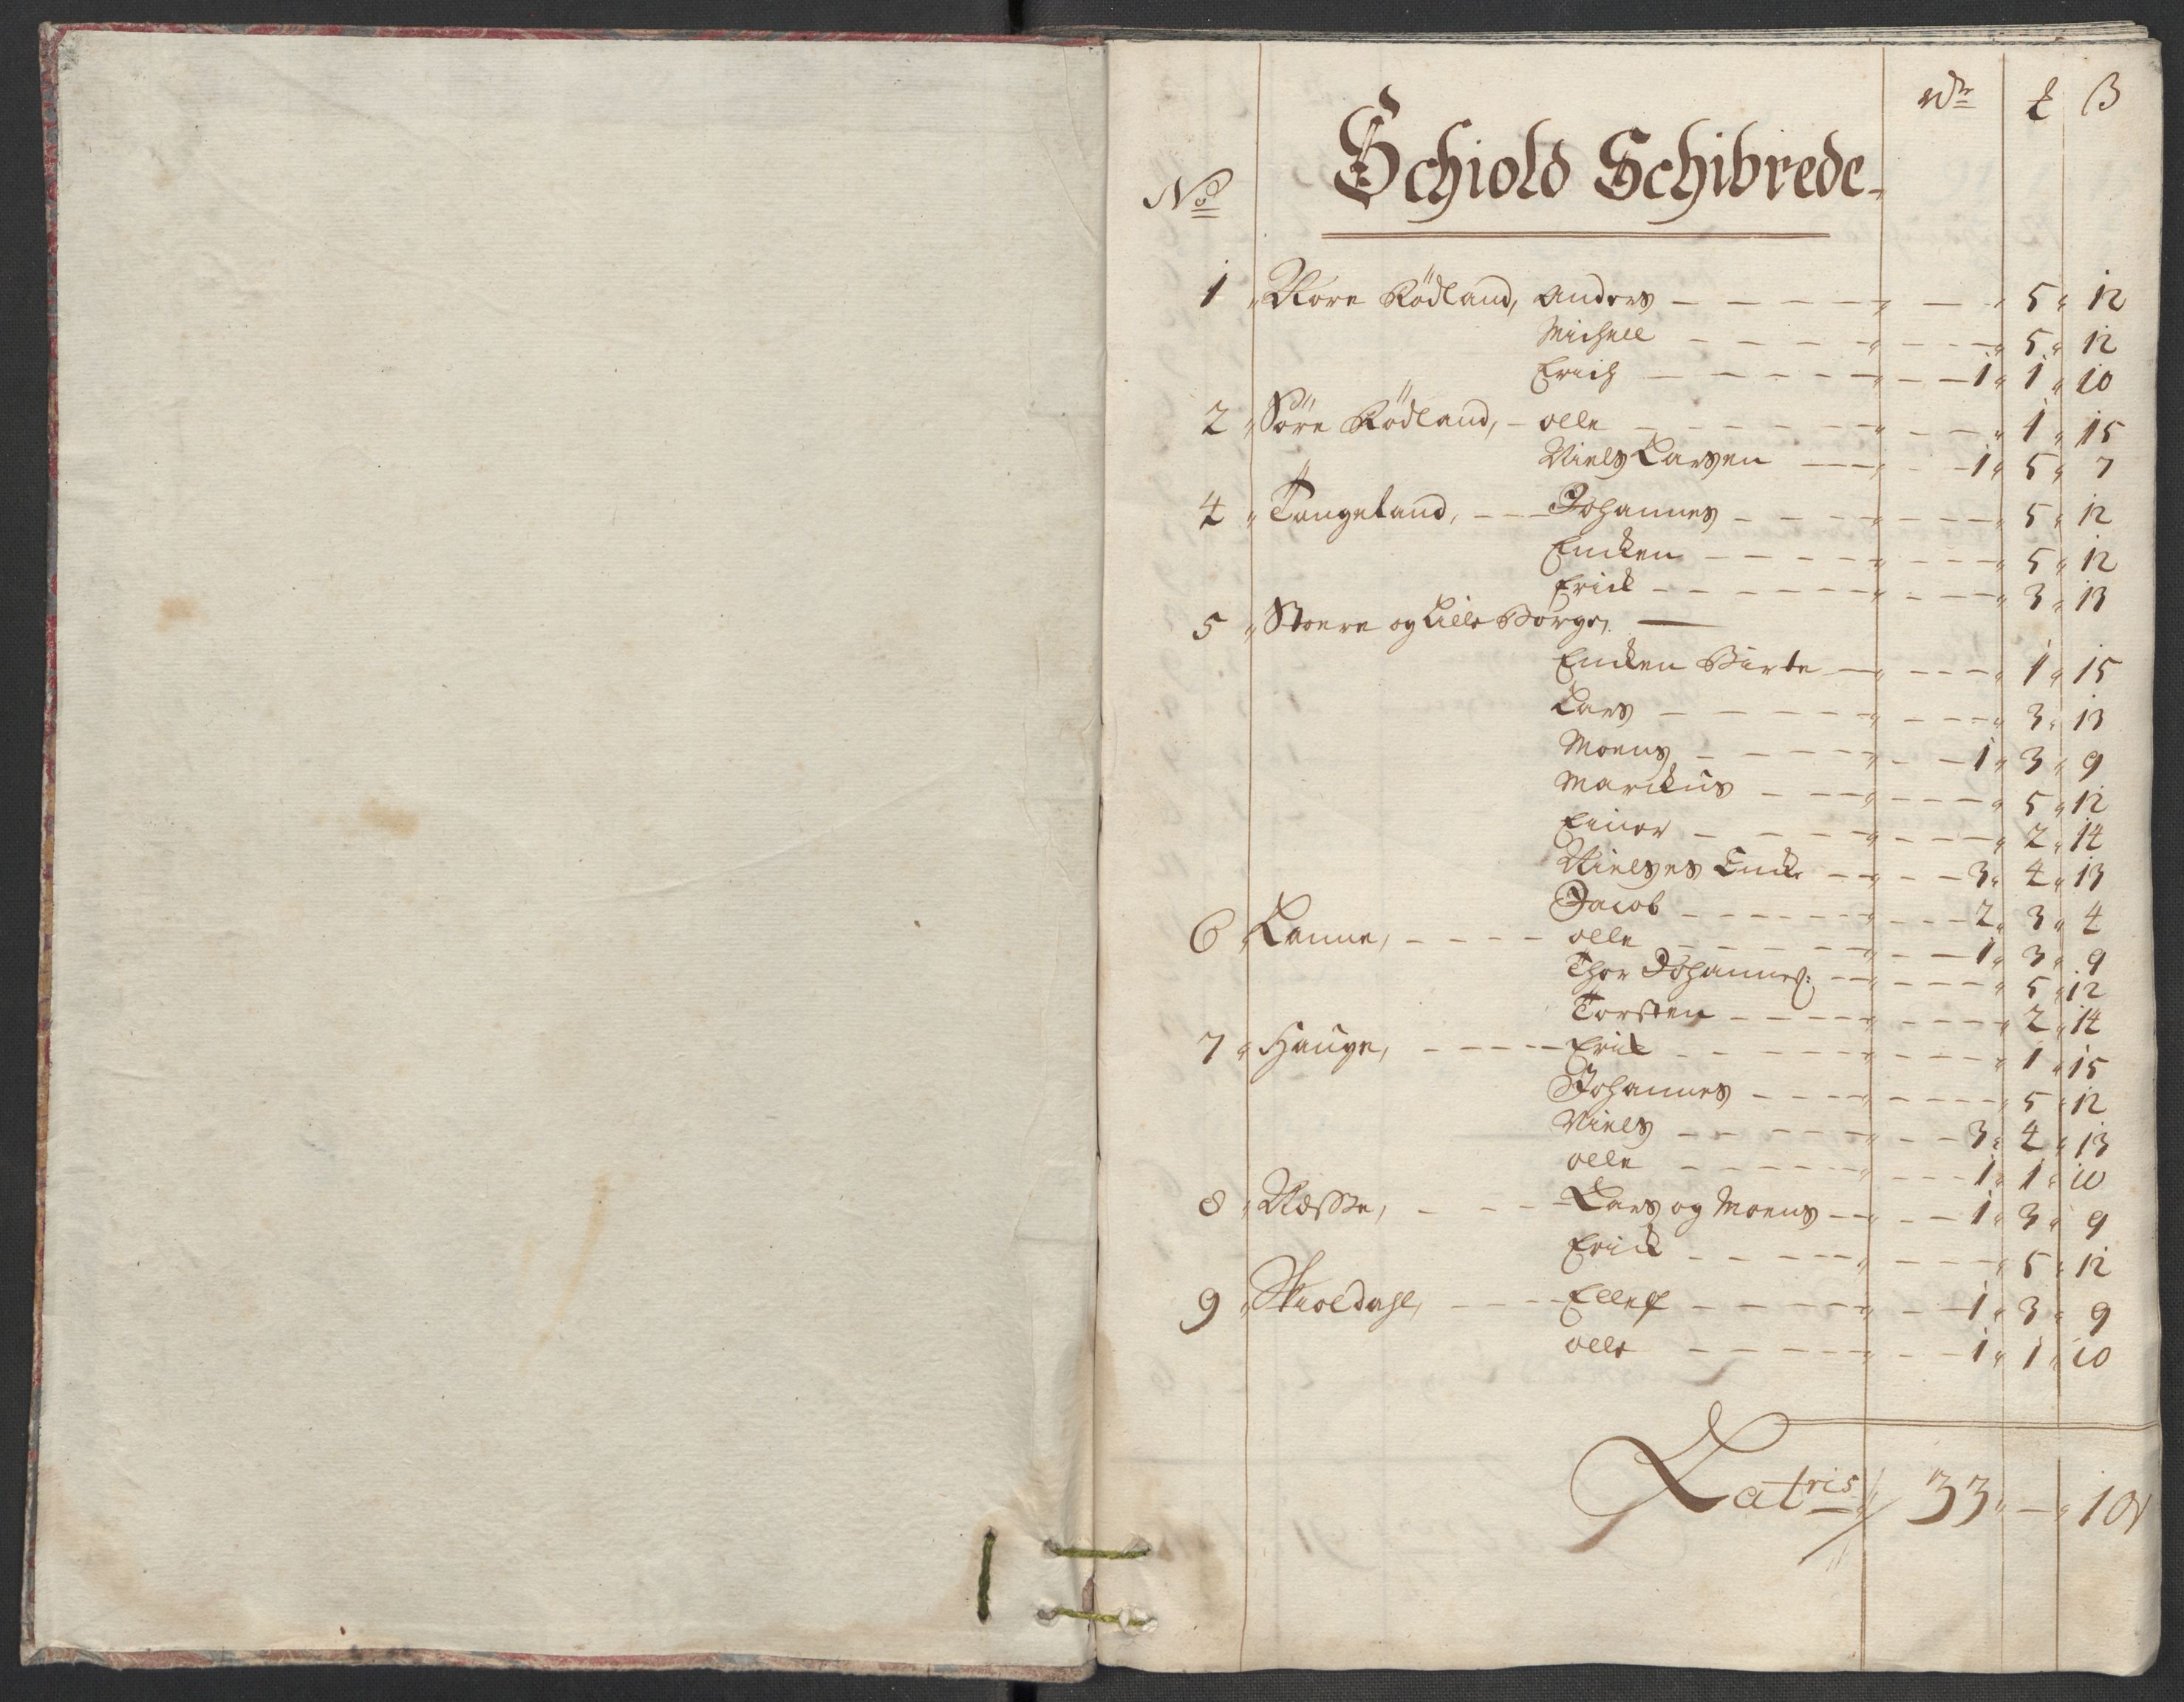 Wd₂ ₤ β
No
Schiold Schibrede
1 Nore Rödland, Anders — 5 12
Michell — 5 12
Erich — 1 1 10
2 Söre Rödland, olle — 1 15
Niels Larsen — 1 5 7
4 Tangeland, Johannes — 5 12
Encken — 5 12
Erick — 3 13
5 Stoere og Lille Børge,
Encken Birte — 1 15
Lars — 3 13
Moens — 1 3 9
Marckus — 5 12
Einer — 2 14
Nielses Enck — 3 4 13
Jacob — 2 3 4
6 Lanne, olle — 1 3 9
Thor Johannes: — 5 12
Torsten — 2 14
7 Hauge, Erick — 1 15
Johannes — 5 12
Niels — 3 4 13
olle — 1 1 10
8 Næsse, Lars og Moens — 1 3 9
Erick — 5 12
9 Skioldahl, Ellef — 1 3 9
olle — 1 1 10
Latris 33 — 10